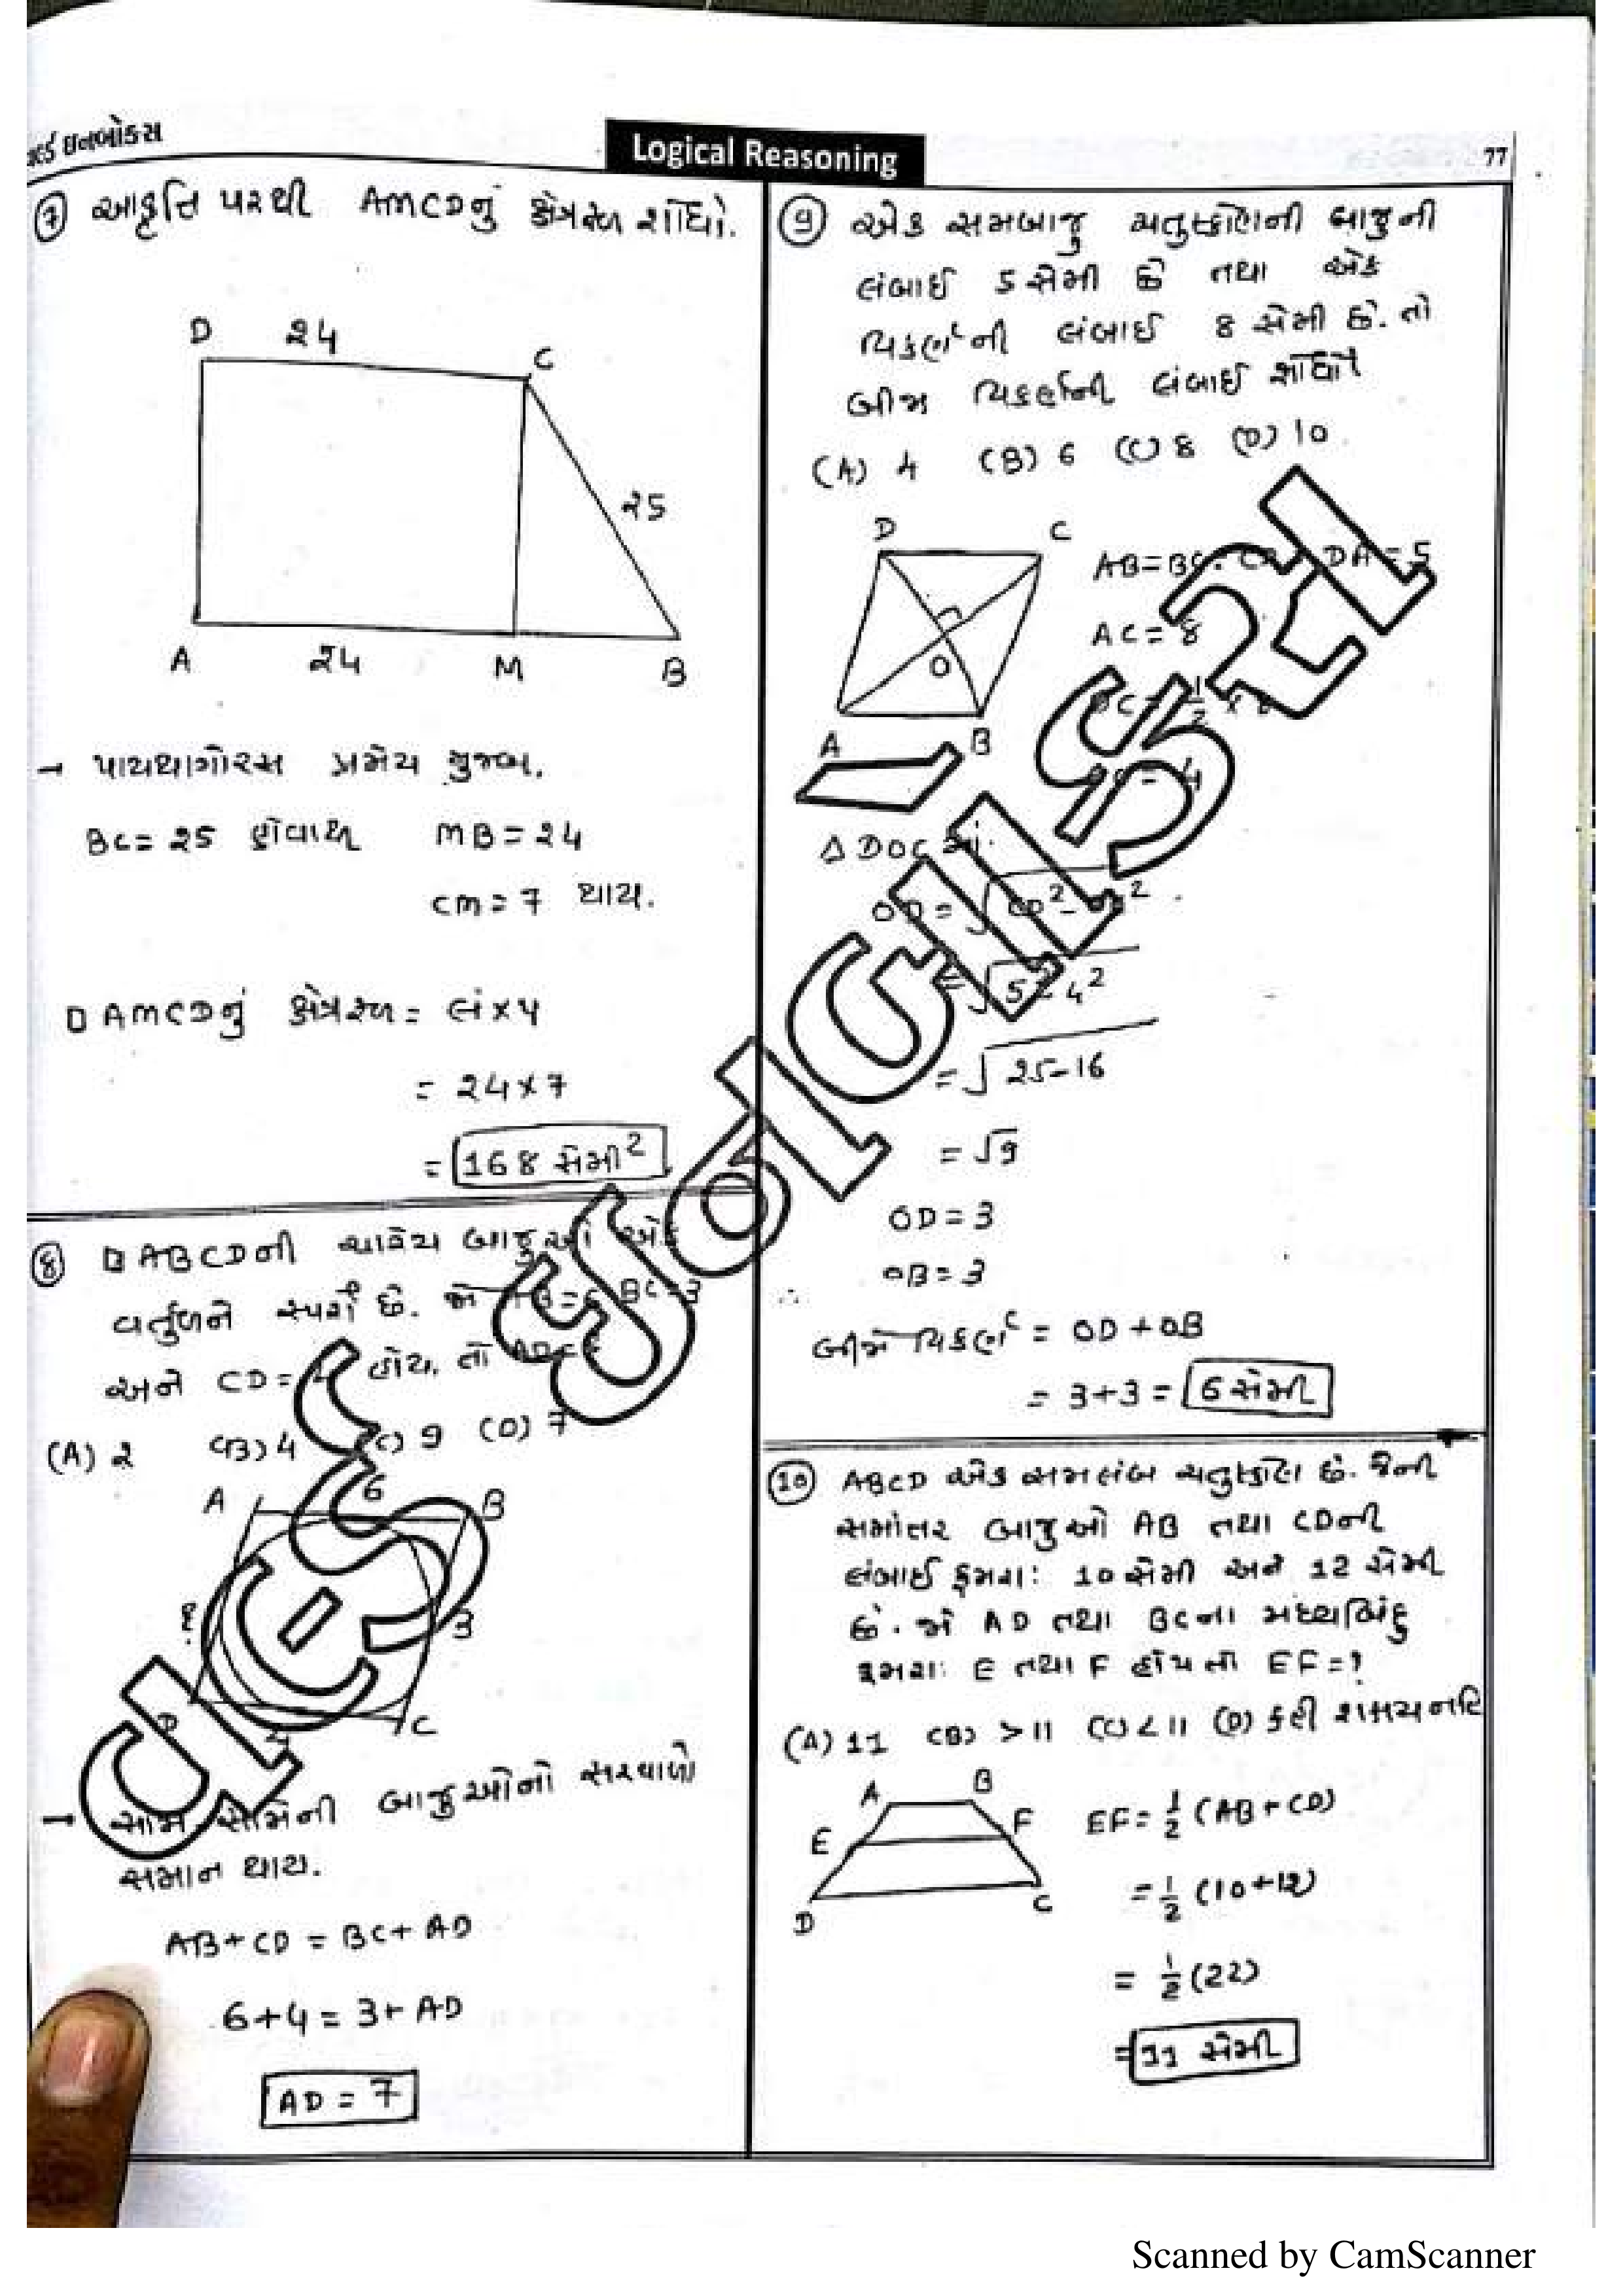 વર્લ્ડ ઇનબોક્સ
Logical Reasoning
77
7 આકૃતિ પરથી AMCDનું ક્ષેત્રફળ શોધો.
D 24 C
25
A 24 M B
→ પાયથાગોરસ પ્રમેય મુજબ,
BC = 25 હોવાથી MB = 24
CM = 7 થાય.
□ AMCDનું ક્ષેત્રફળ = લં × પ
= 24 × 7
= 168 સેમી²
8 □ ABCDની ચારેય બાજુઓ એક
વર્તુળને સ્પર્શે છે. જો AB = 6 BC = 3
અને CD = 4 હોય, તો AD =
(A) 2 (B) 4 (C) 9 (D) 7
A 6 B
? 3
D 4 C
→ સામ સામેની બાજુઓનો સરવાળો
સમાન થાય.
AB + CD = BC + AD
6 + 4 = 3 + AD
AD = 7
9 એક સમબાજુ ચતુષ્કોણની બાજુની
લંબાઈ 5 સેમી છે તથા એક
વિકર્ણની લંબાઈ 8 સેમી છે. તો
બીજા વિકર્ણની લંબાઈ શોધો
(A) 4 (B) 6 (C) 8 (D) 10
D C
AB = BC = CD = DA = 5
AC = 8
O
OC = 1/2 × 8
A B
OC = 4
Δ DOC માં
OD = √CD² - OC²
= √5² - 4²
= √25-16
= √9
OD = 3
∴ OB = 3
બીજો વિકર્ણ = OD + OB
= 3 + 3 = 6 સેમી
10 ABCD એક સમલંબ ચતુષ્કોણ છે. જેની
સમાંતર બાજુઓ AB તથા CDની
લંબાઈ ક્રમશ: 10 સેમી અને 12 સેમી
છે. જો AD તથા BCના મધ્યબિંદુ
ક્રમશ: E તથા F હોય તો EF = ?
(A) 11 (B) > 11 (C) < 11 (D) કહી શકાય નહિ
A B
E F
D C
EF = 1/2 (AB + CD)
= 1/2 (10 + 12)
= 1/2 (22)
= 11 સેમી
Scanned by CamScanner